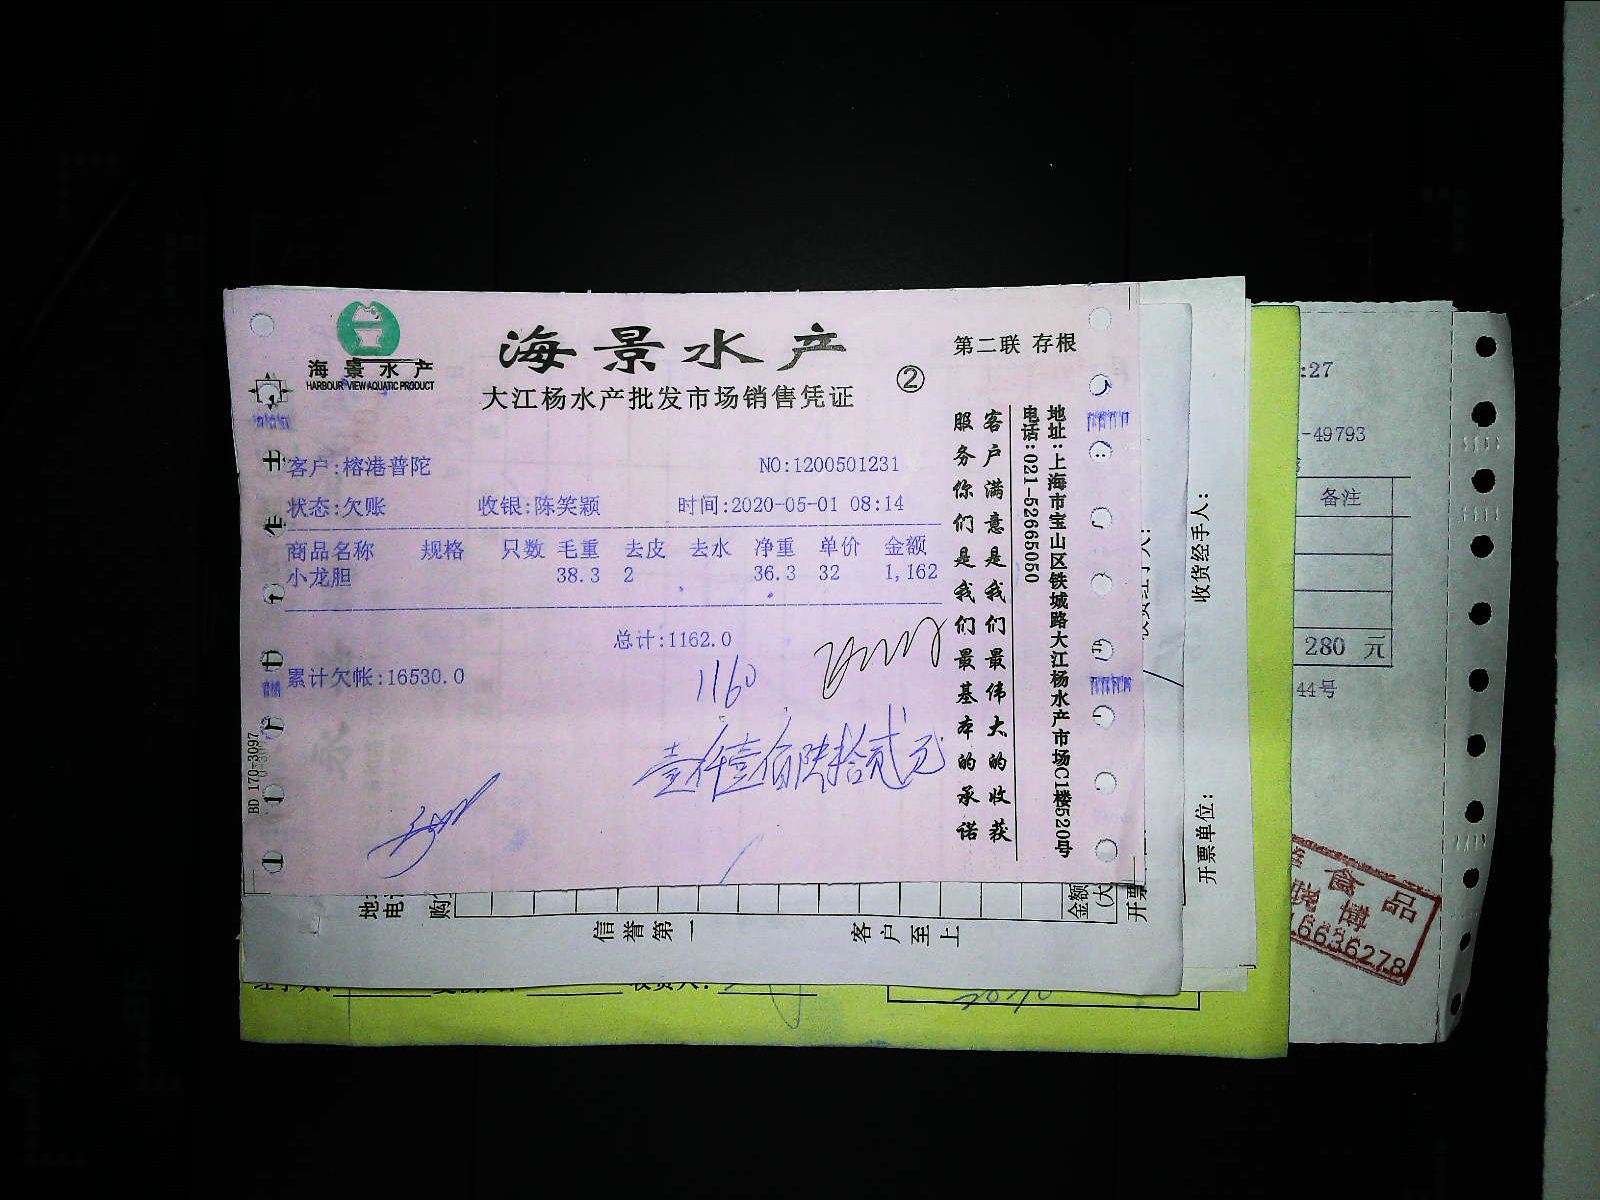 海景水产
HARBOUR VIEW AQUATIC PRODUCT
海景水产
大江杨水产批发市场销售凭证
②
第二联 存根
客户:榕港普陀
NO:1200501231
状态:欠账 收银:陈笑颖 时间:2020-05-01 08:14
商品名称 规格 只数 毛重 去皮 去水 净重 单价 金额
小龙胆 38.3 2 36.3 32 1,162
总计:1162.0
累计欠帐:16530.0
1160
壹仟壹佰陆拾贰元
地址:上海市宝山区铁城路大江杨水产市场C1楼520号
电话:021-52665050
客户满意是我们最伟大的收获
服务你们是我们最基本的承诺
BD 170-3097
信誉第一
客户至上
收货经手人:
开票单位:
:27
-49793
备注
280 元
44号
食品
6636278